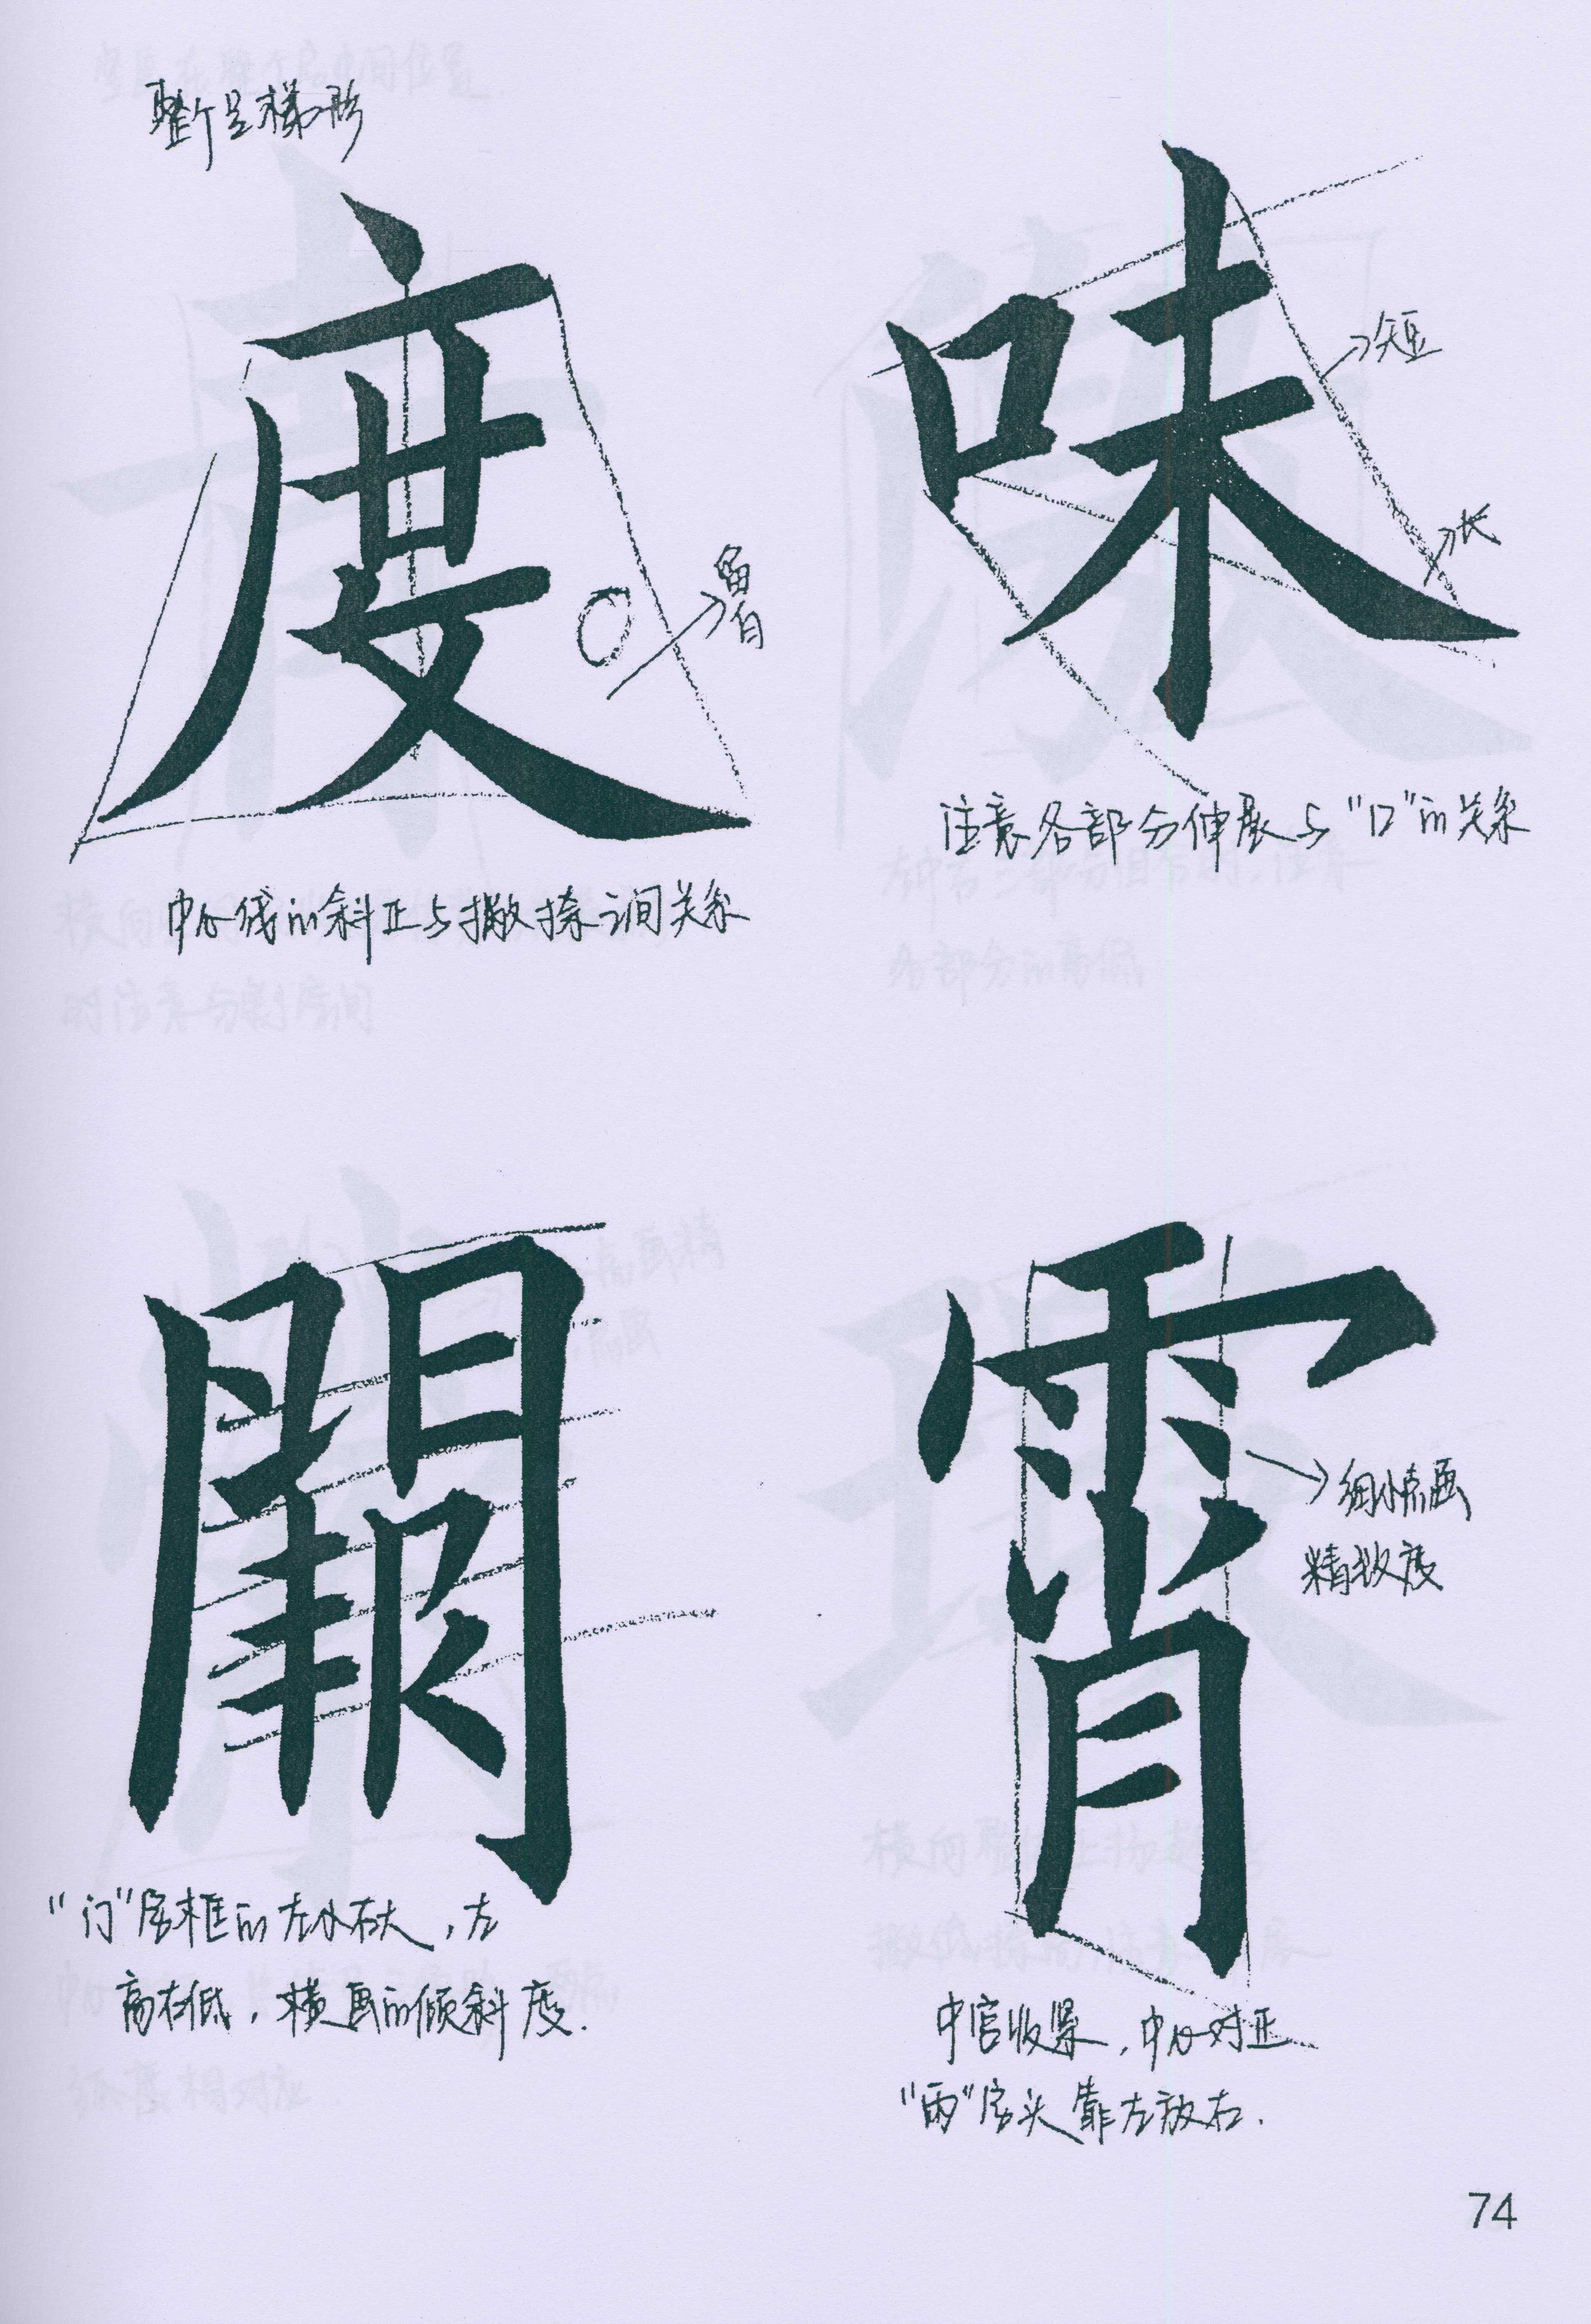 整个呈梯形
度
留白
中心线的斜正与撇捺之间关系
味
短
长
注意各部分伸展与“口”的关系
“门”字框的左小右大，左
高右低，横画的倾斜度.
霄
细小点画
精致度
中宫收紧，中心对正
“雨”字头靠左放右.
74